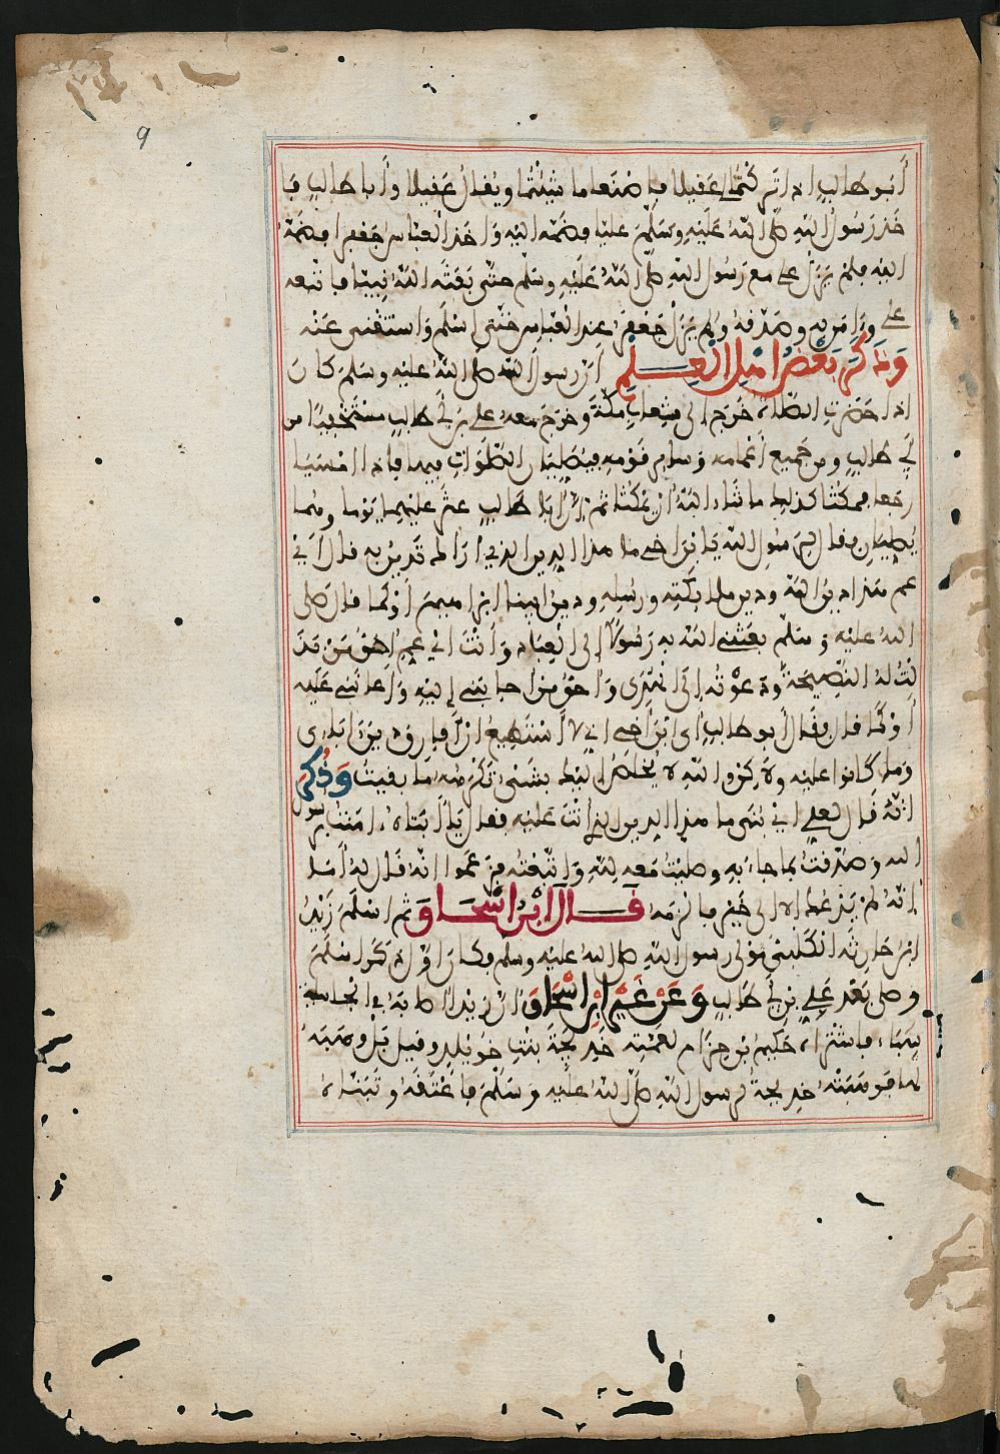 9
أبو طالب اذا تركتما لي عقيلا فاصنعا ما شئتما ويقال عقيلا وأبا طالب فا
خذ رسول الله صلى الله عليه وسلم عليا فضمه اليه واخذ العباس جعفرا فضمه
اليه فلم يزل علي مع رسول الله صلى الله عليه وسلم حتى بعثه الله نبيا فاتبعه
علي وءامن به وصدقه ولم يزل جعفر عند العباس حتى اسلم واستغنى عنه
وذكر بعض اهل العلم ان رسول الله صلى الله عليه وسلم كان
اذا حضرت الصلاة خرج الى شعاب مكة وخرج معه علي بن أبي طالب مستخفيا من
أبي طالب ومن جميع أعمامه وساير قومه فيصليان الصلوات فيها فاذا امسيا
رجعا فمكثا كذلك ما شاء الله ان يمكثا ثم ان ابا طالب عثر عليهما يوما وهما
يصليان فقال لرسول الله يا ابن اخي ما هذا الدين الذي اراك تدين به قال أي
عم هذا دين الله ودين ملائكته ورسله ودين ابينا ابراهيم او كما قال صلى
الله عليه وسلم بعثني الله به رسولا الى العباد وأنت اي عم احق من بذ
لت له النصيحة ودعوته الى الهدى واحق من اجابني اليه وأعانني عليه
أو كما قال فقال أبو طالب اي ابن اخي اني لا أستطيع ان أفارق دين ءاباءى
وما كانوا عليه ولاكن والله لا يخلص اليك بشيء تكرهه ما بقيت وذكر
انه قال لعلي اي بني ما هذا الدين الذي أنت عليه فقال يا أبتاه ءامنت برسول
الله وصدقت بما جاء به وصليت معه لله واتبعته فزعموا انه قال له أما
انه لم يدعك الا الى خير فالزمه قال ابن اسحاق ثم اسلم زيد
ابن حارثة الكلبي مولى رسول الله صلى الله عليه وسلم فكان اول ذكر اسلم
وصلى بعد علي بن أبي طالب وعن غير ابن اسحاق ان زيدا اصابه في الجاهلية
سباء فاشتراه حكيم بن حزام لعمته خديجة بنت خويلد وقيل بل وهبه
لها فوهبته خديجة لرسول الله صلى الله عليه وسلم فاعتقه وتبناه